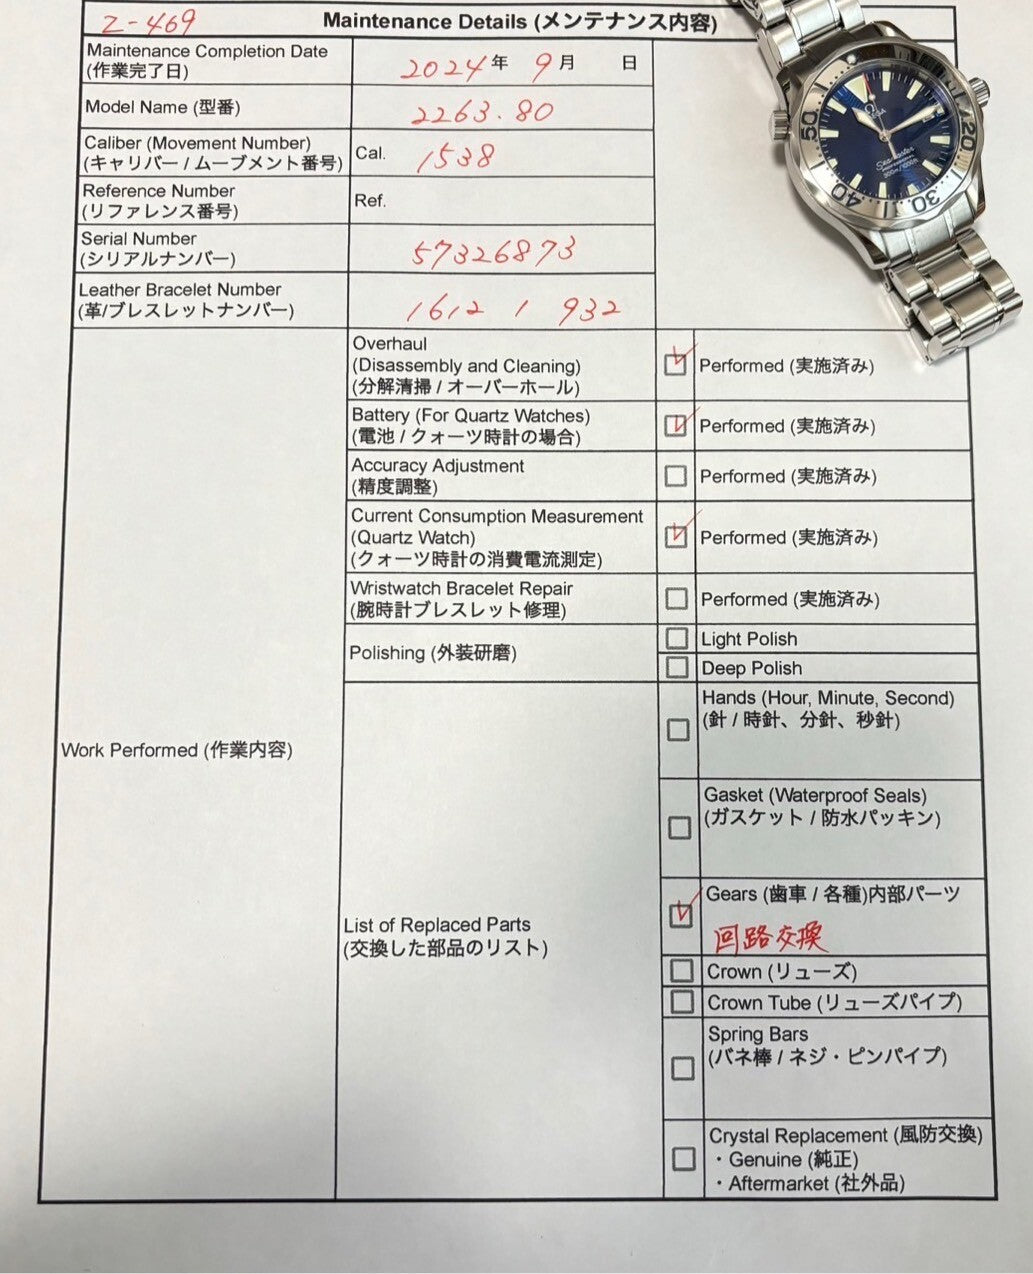 Z-469
Maintenance Details (メンテナンス内容)
Maintenance Completion Date
(作業完了日)
2024年 9月 日
Model Name (型番)
2263.80
Caliber (Movement Number)
(キャリバー / ムーブメント番号)
Cal. 1538
Reference Number
(リファレンス番号)
Ref.
Serial Number
(シリアルナンバー)
57326873
Leather Bracelet Number
(革/ブレスレットナンバー)
1612 1 932
Work Performed (作業内容)
Overhaul
(Disassembly and Cleaning)
(分解清掃 / オーバーホール)
Performed (実施済み)
Battery (For Quartz Watches)
(電池 / クォーツ時計の場合)
Performed (実施済み)
Accuracy Adjustment
(精度調整)
Performed (実施済み)
Current Consumption Measurement
(Quartz Watch)
(クォーツ時計の消費電流測定)
Performed (実施済み)
Wristwatch Bracelet Repair
(腕時計ブレスレット修理)
Performed (実施済み)
Polishing (外装研磨)
Light Polish
Deep Polish
List of Replaced Parts
(交換した部品のリスト)
Hands (Hour, Minute, Second)
(針 / 時針、分針、秒針)
Gasket (Waterproof Seals)
(ガスケット / 防水パッキン)
Gears (歯車 / 各種)内部パーツ
回路交換
Crown (リューズ)
Crown Tube (リューズパイプ)
Spring Bars
(バネ棒 / ネジ・ピンパイプ)
Crystal Replacement (風防交換)
・Genuine (純正)
・Aftermarket (社外品)
Ω
OMEGA
Seamaster
300m/1000ft
20
30
40
50